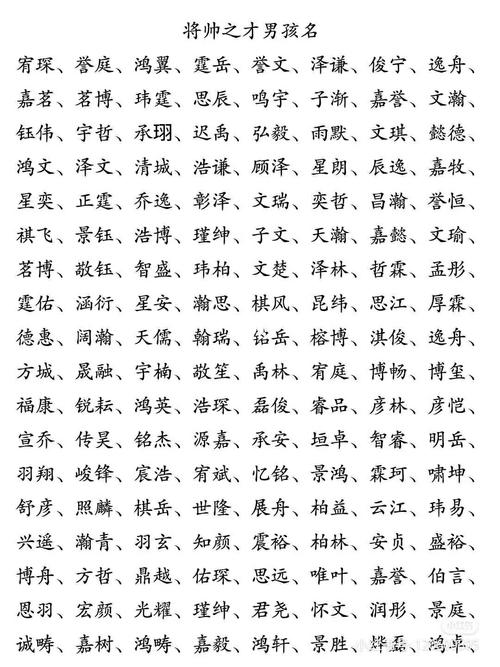 将帅之才男孩名
宥琛、誉庭、鸿翼、霆岳、誉文、泽谦、俊宁、逸舟、
嘉茗、茗博、玮霆、思辰、鸣宇、子渐、嘉誉、文瀚、
钰伟、宇哲、承珝、迟禹、弘毅、雨默、文琪、懿德、
鸿文、泽文、清城、浩谦、顾泽、星朗、辰逸、嘉牧、
星奕、正霆、乔逸、彰泽、文瑞、奕哲、昌瀚、誉恒、
祺飞、景钰、浩博、瑾绅、子文、天瀚、嘉懿、文瑜、
茗博、敬钰、智盛、玮柏、文楚、泽林、哲霖、孟彤、
霆佑、涵衍、星安、瀚思、棋风、昆纬、思江、厚霖、
德惠、阔瀚、天儒、翰瑞、铭岳、榕博、淇俊、逸舟、
方城、晟融、宇楠、敬笙、禹林、宥庭、博畅、博玺、
福康、锐耘、鸿英、浩琛、磊俊、睿品、彦林、彦恺、
宣乔、传昊、铭杰、源嘉、承安、垣卓、智睿、明岳、
羽翔、峻锋、宸浩、宥斌、忆铭、景鸿、霖珂、啸坤、
舒彦、照麟、棋岳、世隆、展舟、柏益、云江、玮易、
兴遥、瀚青、羽玄、知颜、震裕、柏林、安贞、盛裕、
博舟、方哲、鼎越、佑琛、思远、唯叶、嘉誉、伯言、
恩羽、宏颜、光耀、瑾绅、君尧、怀文、润彤、景庭、
诚畴、嘉树、鸿畴、嘉毅、鸿轩、景胜、烨磊、鸿卓、